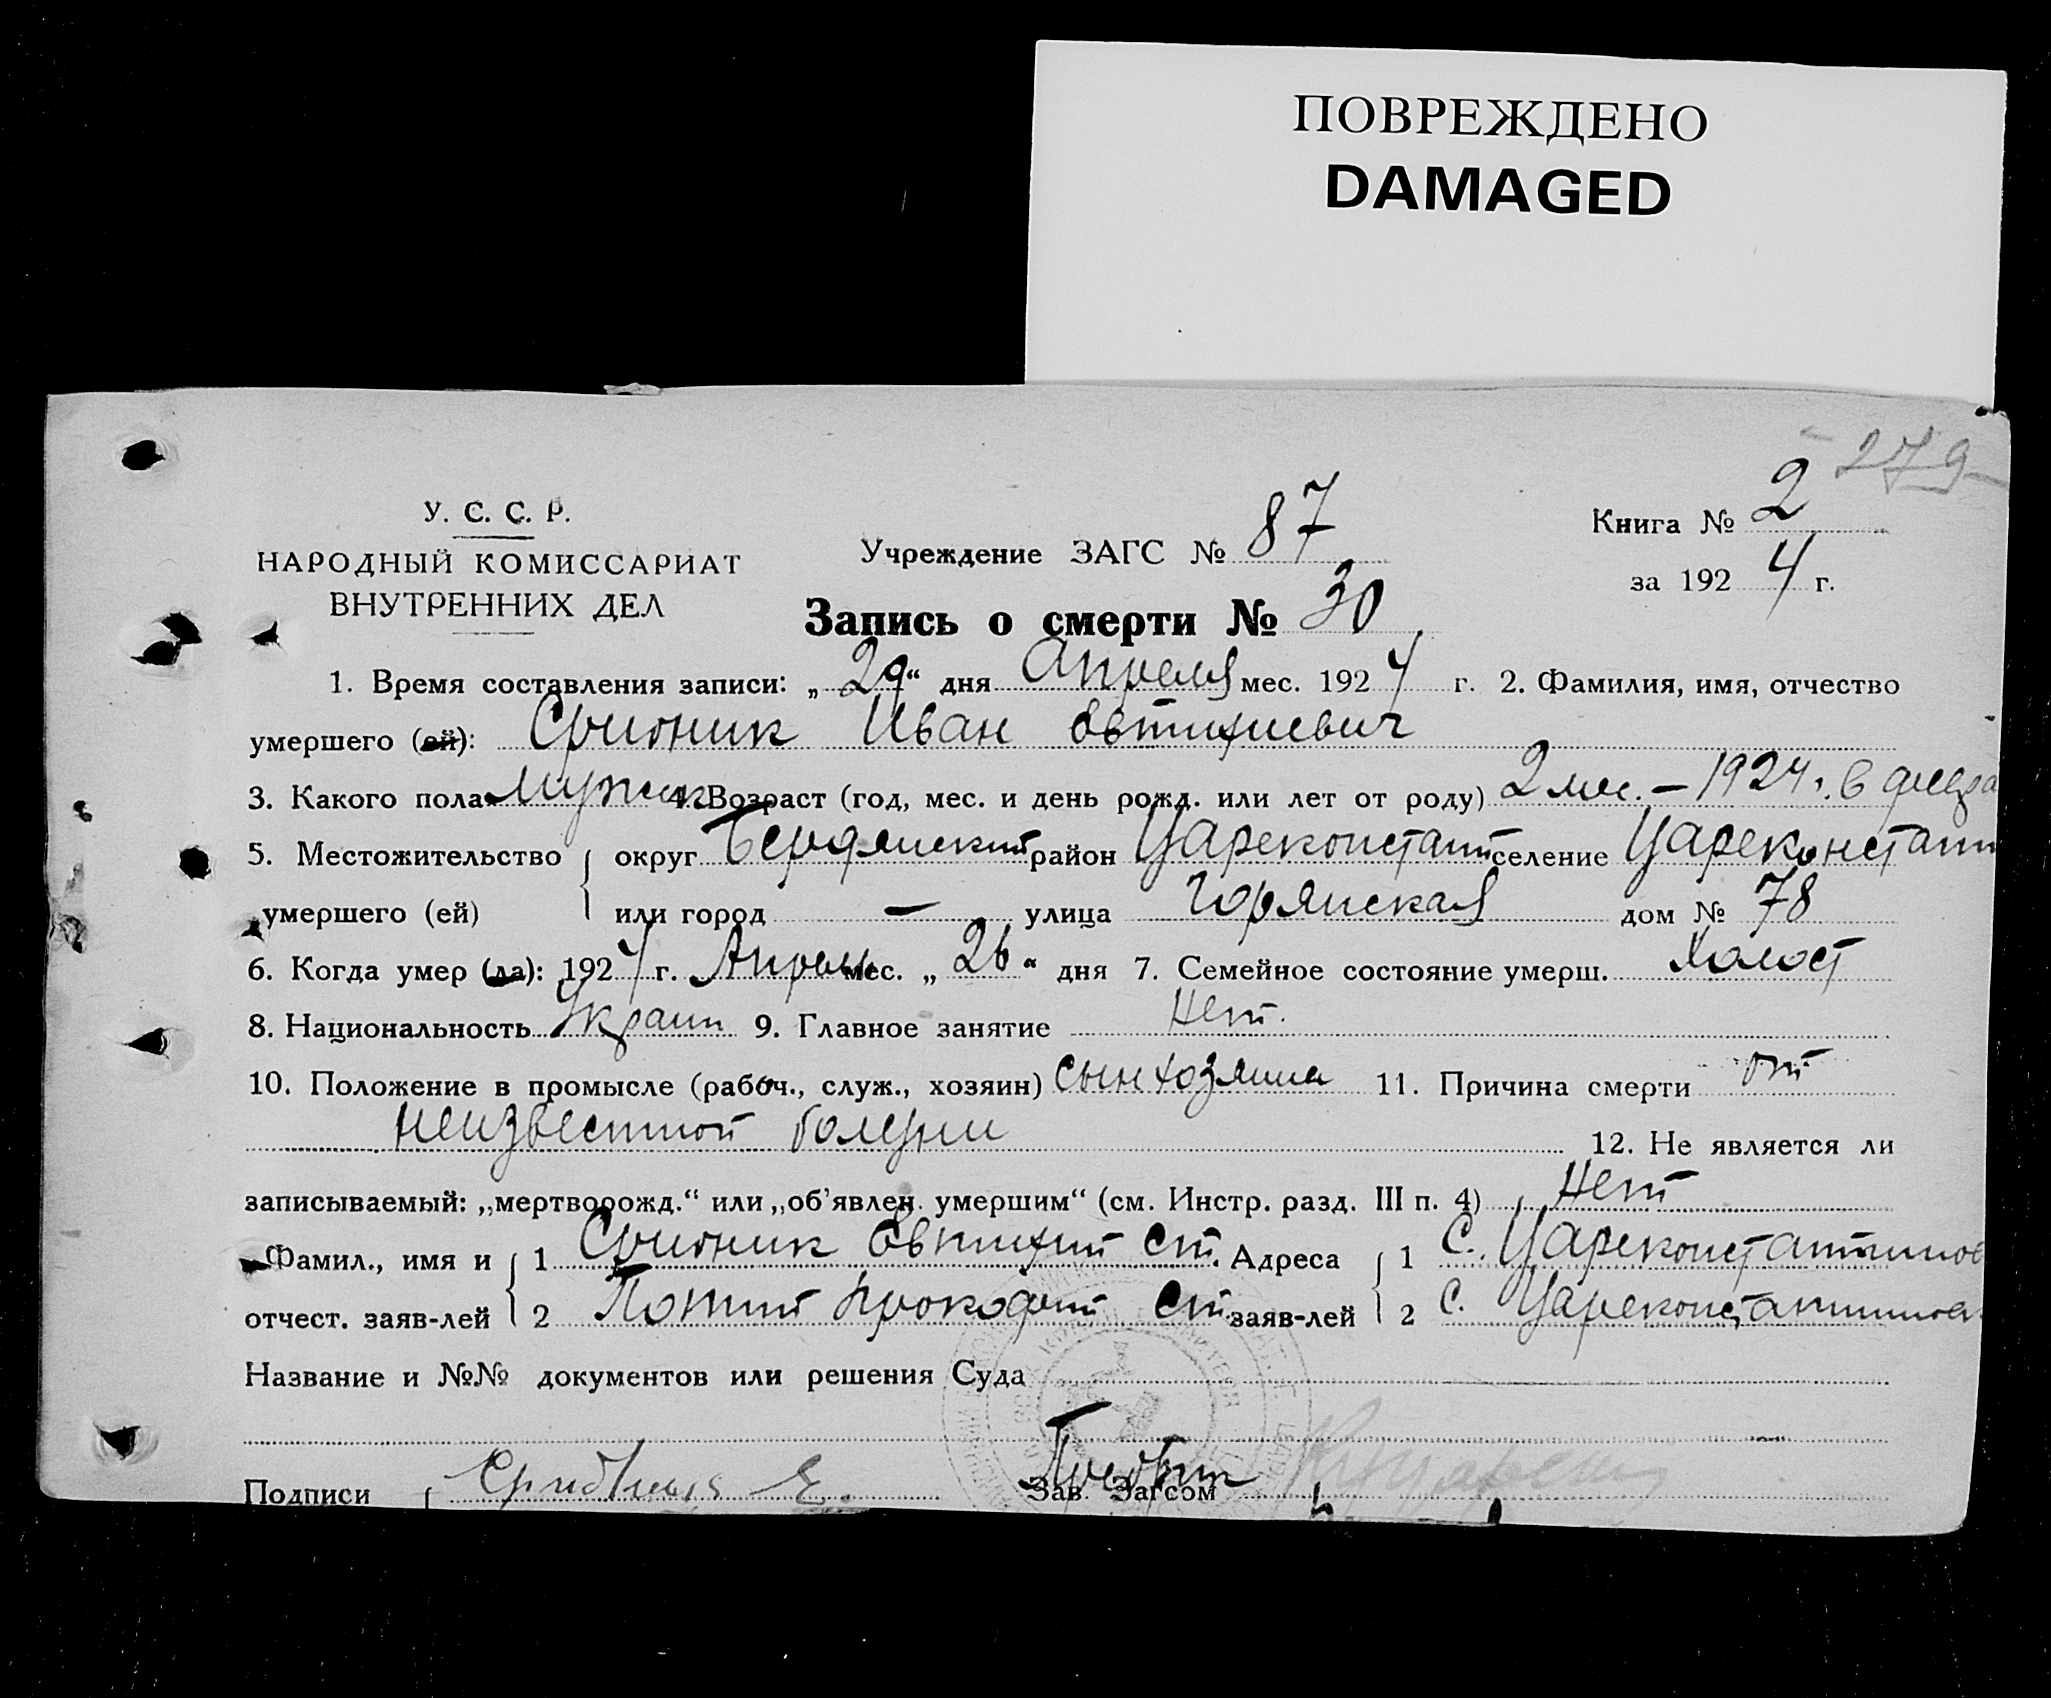 ПОВРЕЖДЕНО
DAMAGED
279
У. С. С. Р.
НАРОДНЫЙ КОМИССАРИАТ
ВНУТРЕННИХ ДЕЛ
Учреждение ЗАГС № 87
Книга № 2
за 1924 г.
Запись о смерти № 30
1. Время составления записи: „29“ дня Апреля мес. 1924 г. 2. Фамилия, имя, отчество
умершего (ей): Иван Евтихиевич
3. Какого пола мужск 4. Возраст (год, мес. и день рожд. или лет от роду) 2 мес. – 1924 г. в февра
5. Местожительство округ Бердянский район Цареконстант селение Цареконстант
умершего (ей) или город — улица дом № 78
6. Когда умер (ла): 1924 г. Апрель мес. „26“ дня 7. Семейное состояние умерш. Холост
8. Национальность Украин 9. Главное занятие Нет.
10. Положение в промысле (рабоч., служ., хозяин) сын хозяина 11. Причина смерти от
неизвестной болезни 12. Не является ли
записываемый: „мертворожд.“ или „об’явлен. умершим“ (см. Инстр. разд. III п. 4) Нет
Фамил., имя и 1 Евтихий Ст. Адреса 1 с. Цареконстантинов
отчест. заяв-лей 2 Прокофий Ст. заяв-лей 2 с. Цареконстантинов
Название и №№ документов или решения Суда
Подписи Е. Зав. Загсом